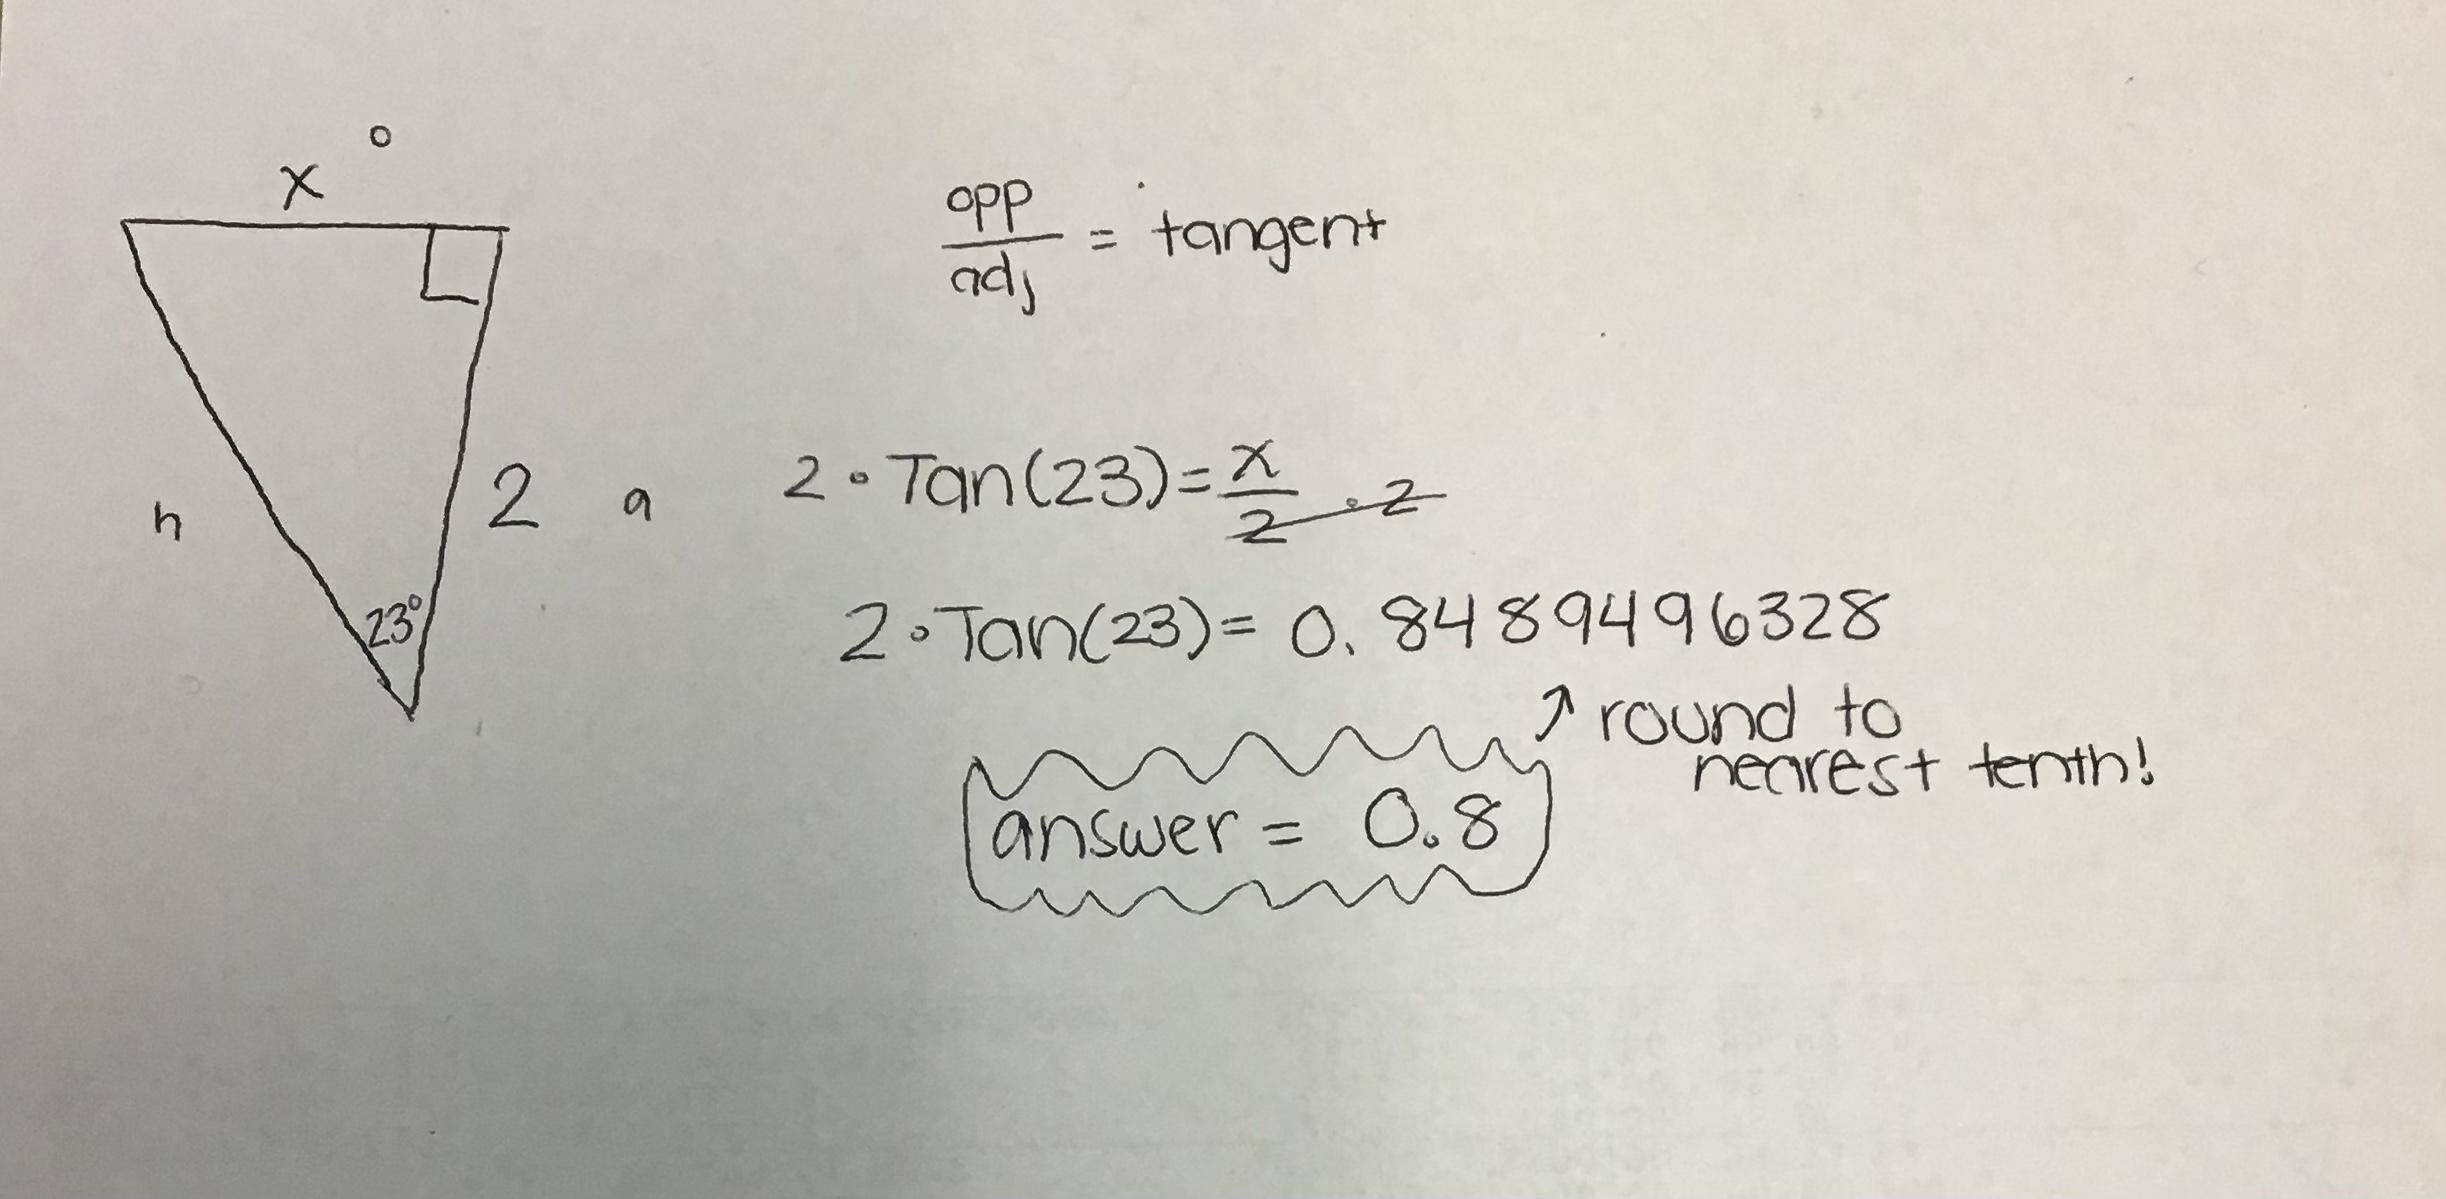 x o
opp
adj = tangent
h 2 a
23°
2 · Tan(23) = x/2 · 2
2 · Tan(23) = 0.8489496328
↗ round to
nearest tenth!
answer = 0.8